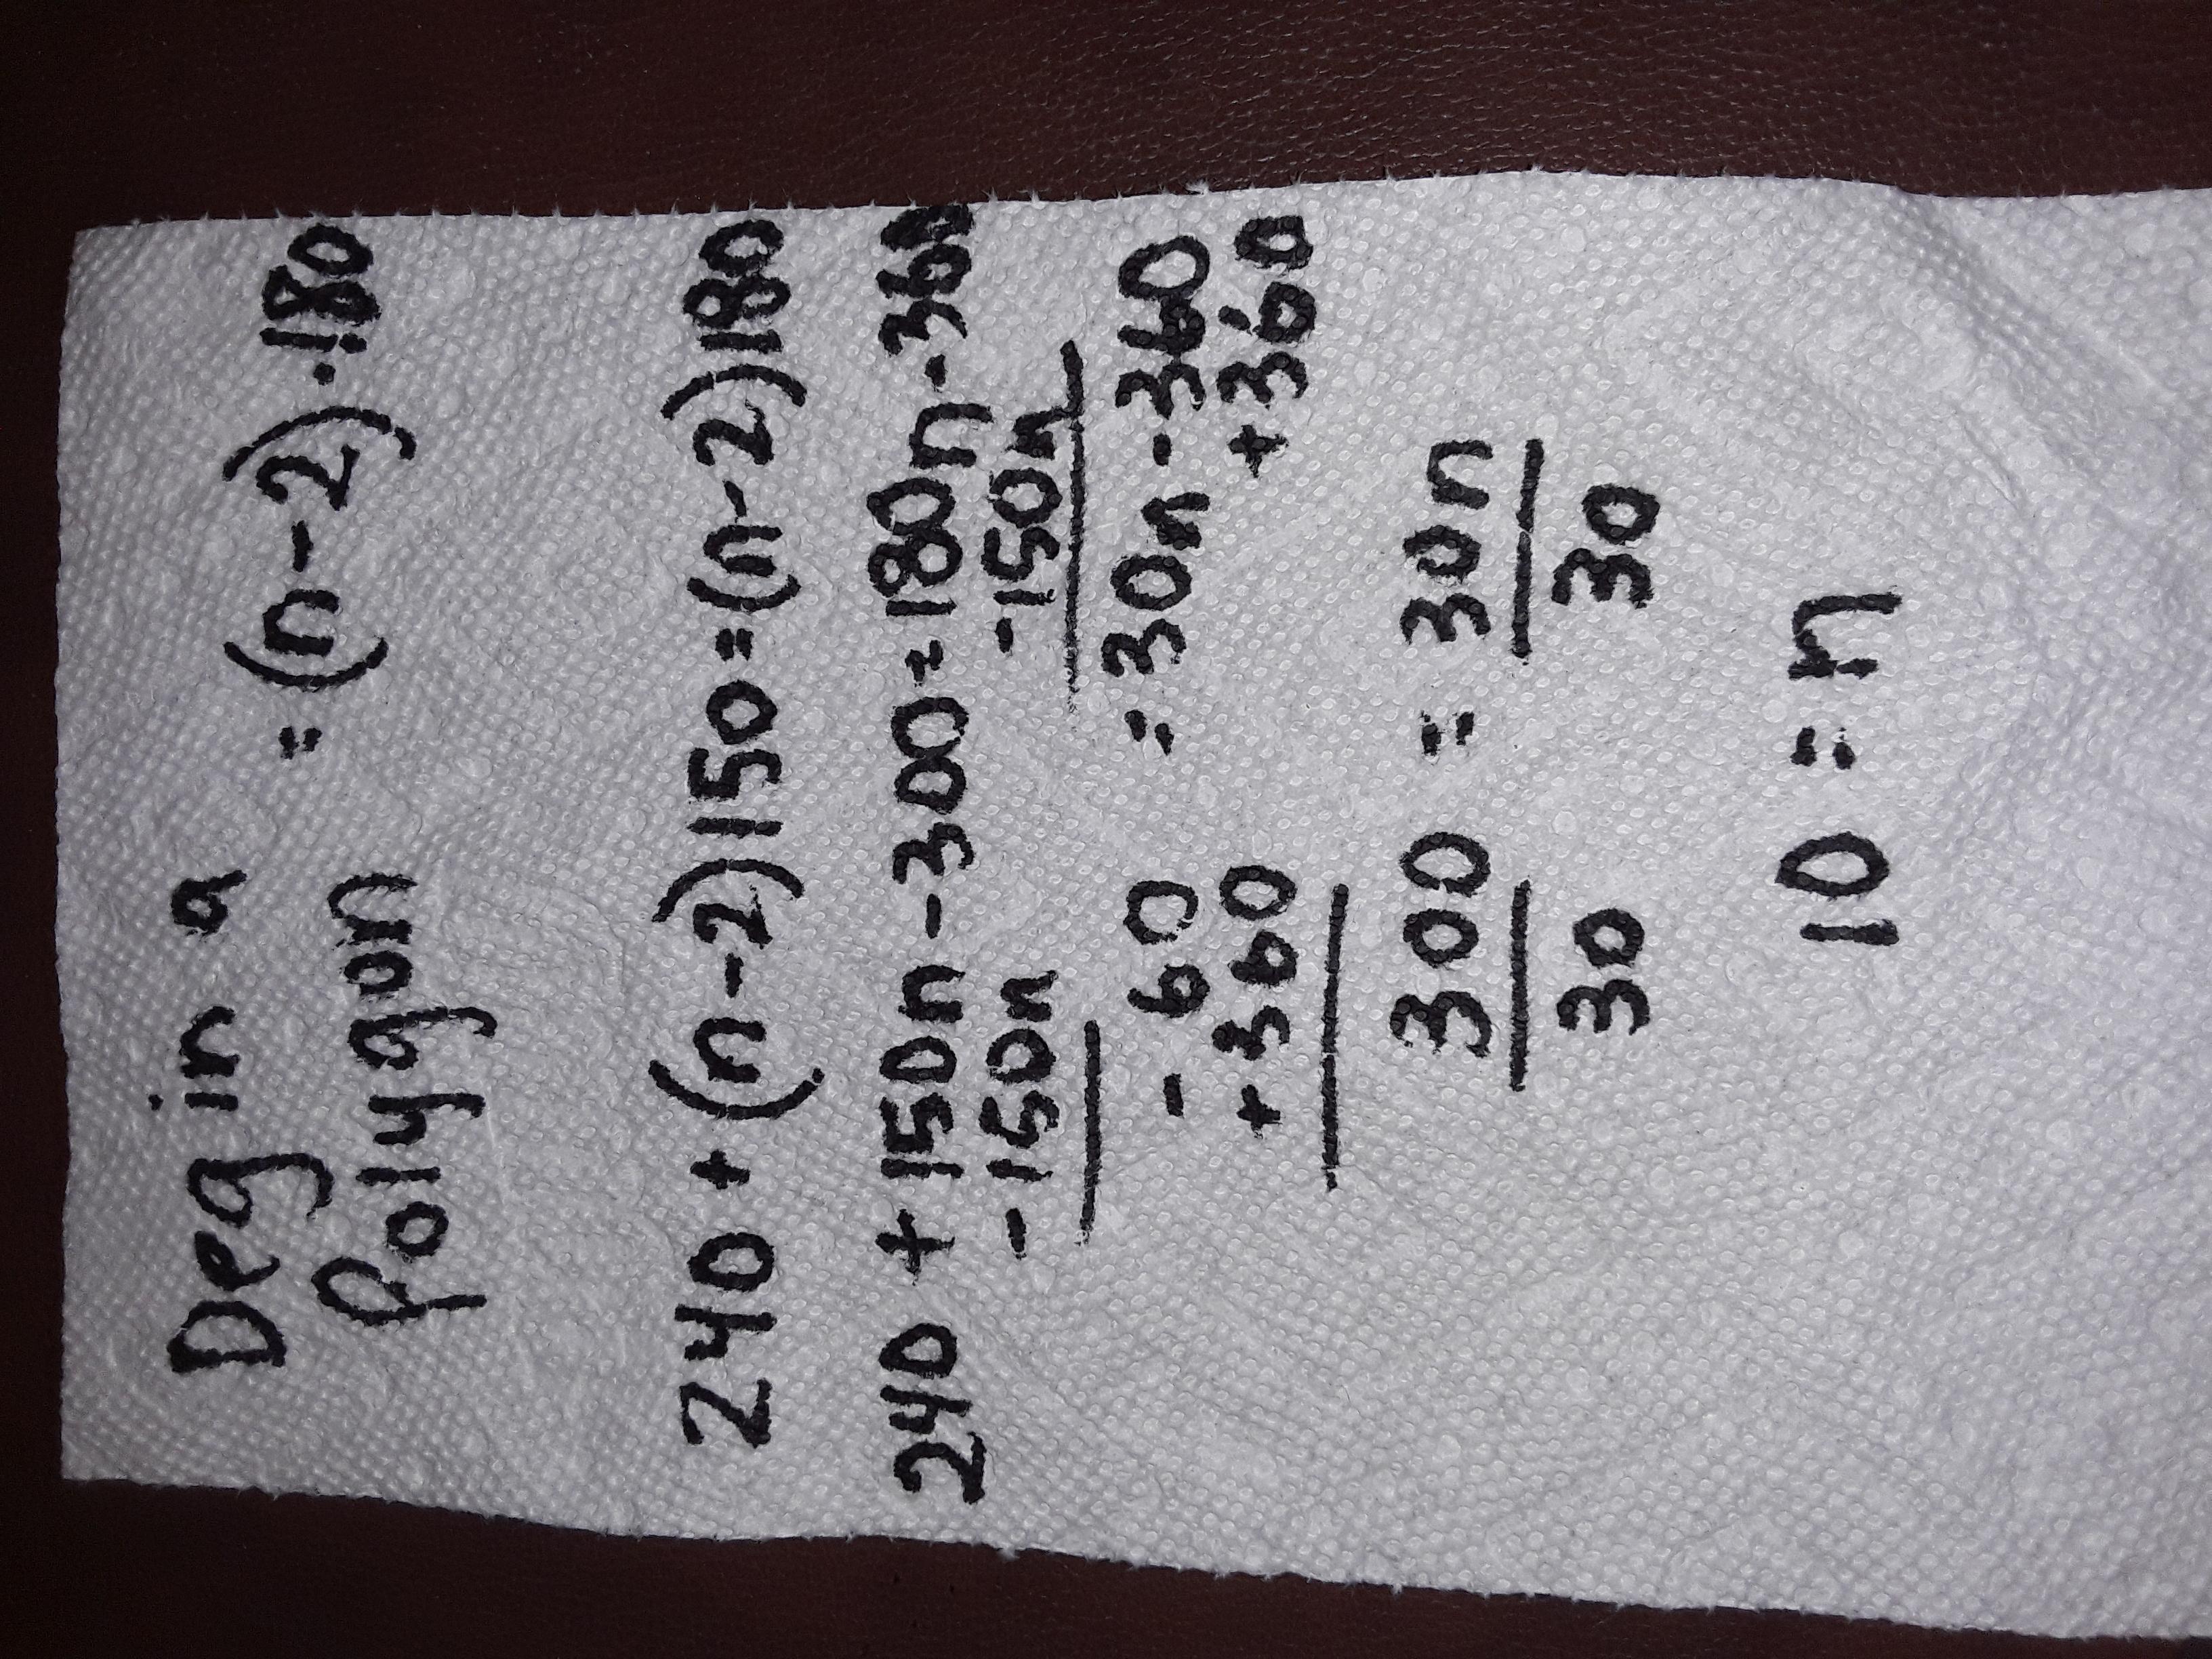 Deg in a
Polygon = (n-2)·180
240 + (n-2)150 = (n-2)180
240 + 150n - 300 = 180n - 360
-150n -150n
-60 = 30n - 360
+360 +360
300 = 30n
30 30
10 = n